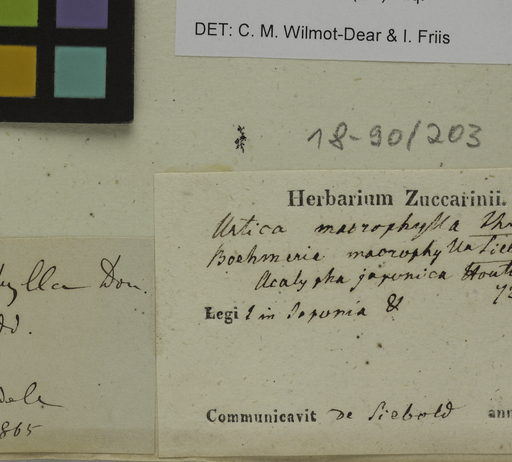 DET: C. M. Wilmot-Dear & I. Friis
18-90/203
Herbarium Zuccarinii.
Urtica macrophylla Thu
Boehmeria macrophylla Sieb
Acalypha japonica Houtt
Legi in Japonia &
Communicavit De Siebold ann
hylla Don.
865